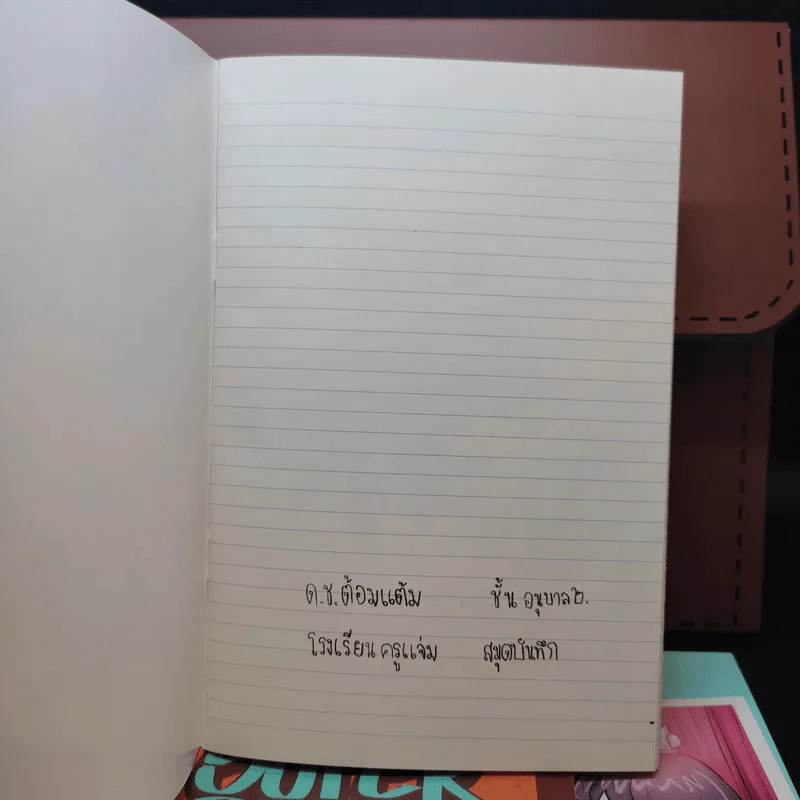 ด.ช.ต้อมแต้ม ชั้น อนุบาล๒.
โรงเรียน ครูแจ่ม สมุดบันทึก